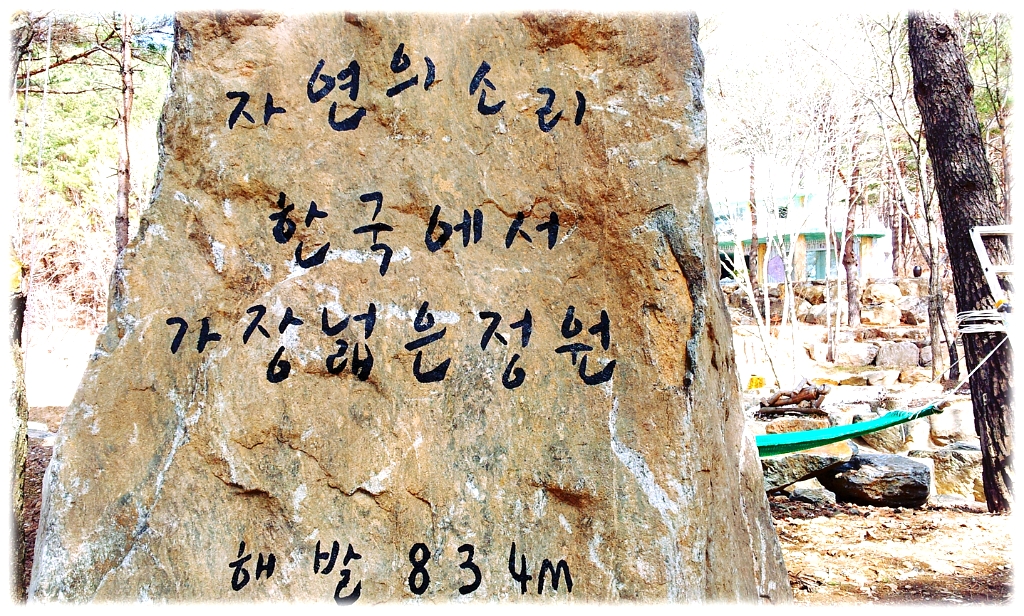 자연의 소리
한국에서
가장 넓은 정원
해발 834m